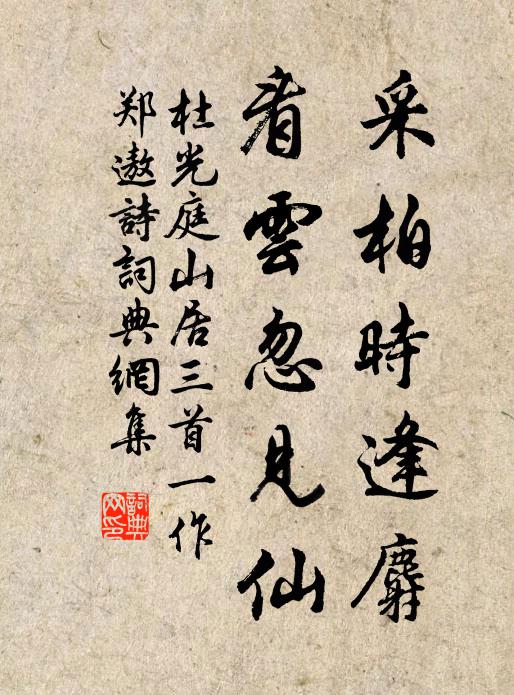 采柏時逢麝
看雲忽見仙
杜光庭山居三首一作
郑遨詩詞典網集
詞典網印